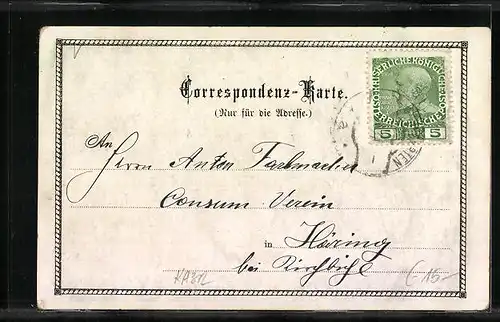 Correspondenz-Karte.
(Nur für die Adresse.)
KAISERLICHE KÖNIGLICHE
ÖSTERREICHISCHE
5 5
An
Herrn Anton Farbmacher
Consum Verein
in Häring
bei Kirchbichl
15-